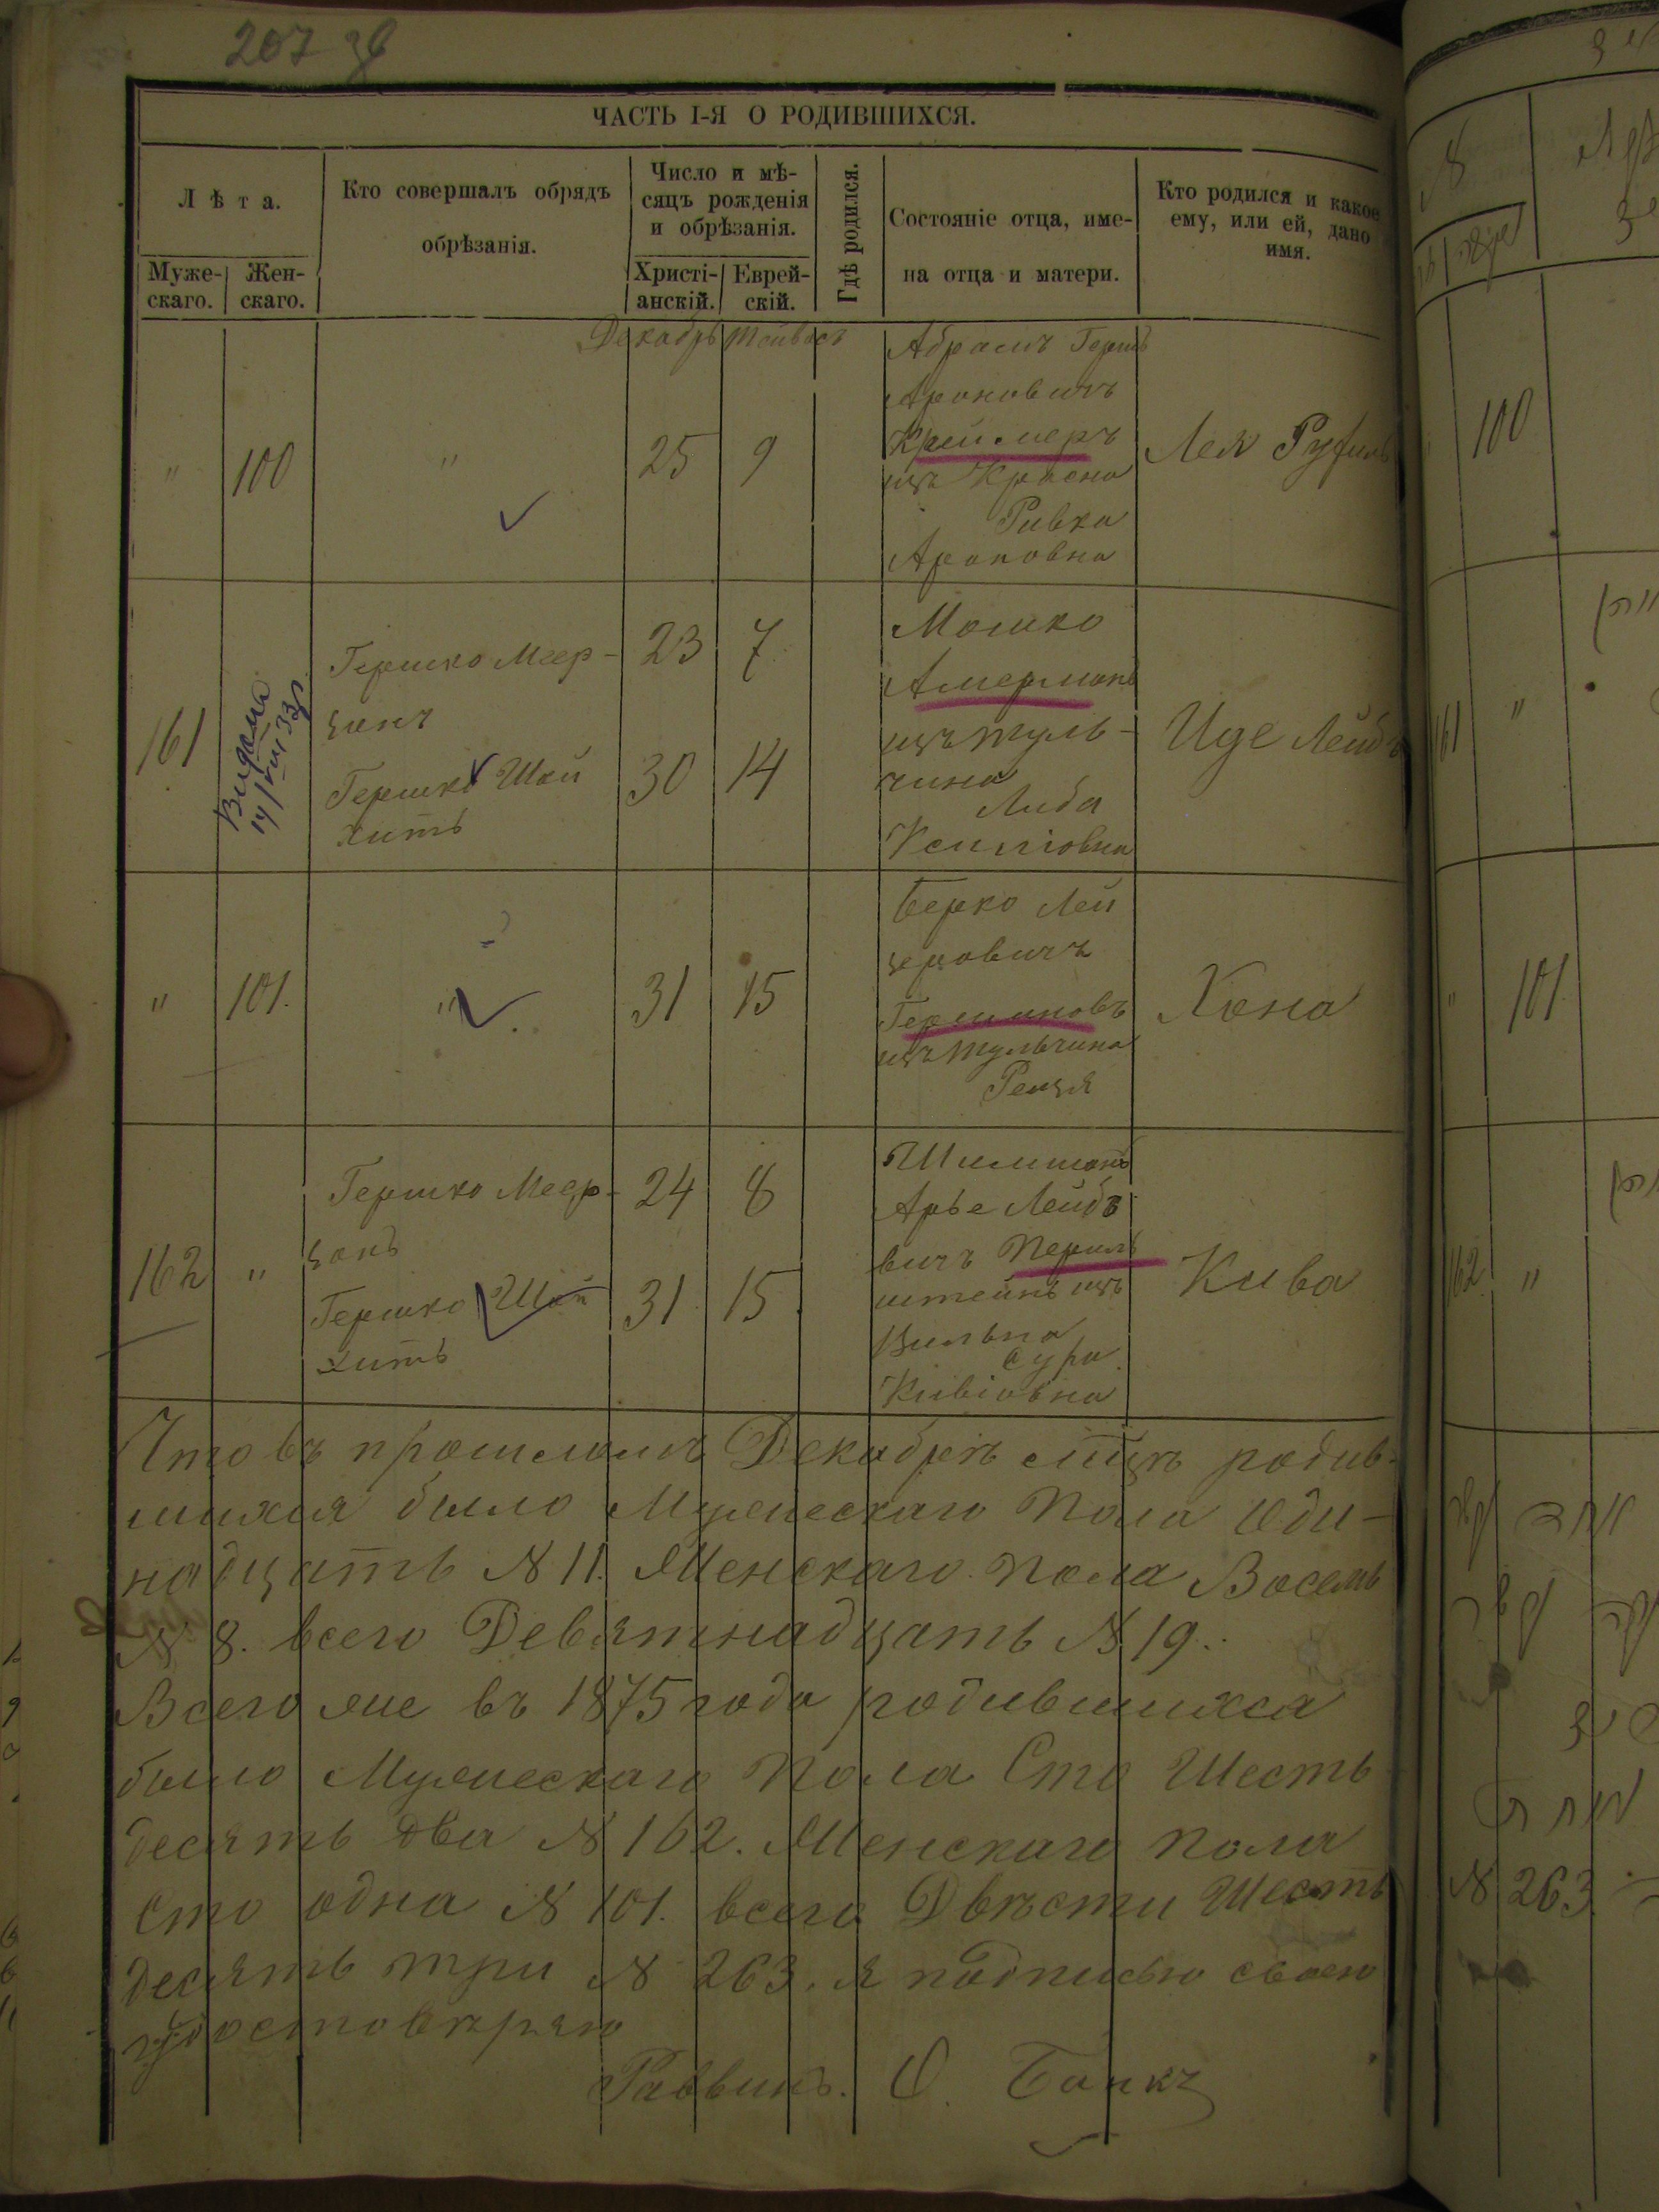 207 об
ЧАСТЬ I-Я О РОДИВШИХСЯ.
Лѣта.
Муже-
скаго.
Жен-
скаго.
Кто совершалъ обрядъ
обрѣзанія.
Число и мѣ-
сяцъ рожденія
и обрѣзанія.
Христі-
анскій.
Еврей-
скій.
Гдѣ родился.
Состояніе отца, име-
на отца и матери.
Кто родился и какое
ему, или ей, дано
имя.
Декабрь Тейвесъ
" 100 " 25 9
Абрамъ Герш
Ароновичъ
Креймеръ
изъ Красна
Ривка
Ароновна
Лея Рухль
161
Видана
14/VIII 33г.
Гершко Меер-
зонъ
Гершко Шой
хитъ
23 7
30 14
Мошко
Амерманъ
изъ Туль-
чина
Либа
Иде Лейбъ
" 101. " 31 15
Берко Лей
зеровичъ
Гершиновъ
изъ Тульчина
Рейзя
Хона
162 "
Гершко Меер-
зонъ
Гершко Шой
хитъ
24 8
31 15
Шимшонъ
Арье Лейбо
вичъ Перель
штейнъ изъ
Вильна
Сура
Кивіовна
Кива
Что въ прошломъ Декабрѣ мцѣ родив-
шихся было Мужескаго Пола Оди-
надцать № 11. Женскаго Пола Восемь
№ 8. всего Девятнадцать № 19.
Всего же въ 1875 года родившихся
было Мужескаго Пола Сто Шесть
десять два № 162. Женскаго пола
Сто одна № 101. всего Двѣсти Шесть
десять три № 263. я подписью своею
удостовѣряю
Раввинъ. Банкъ
100
161 "
" 101
162 "
№ 263